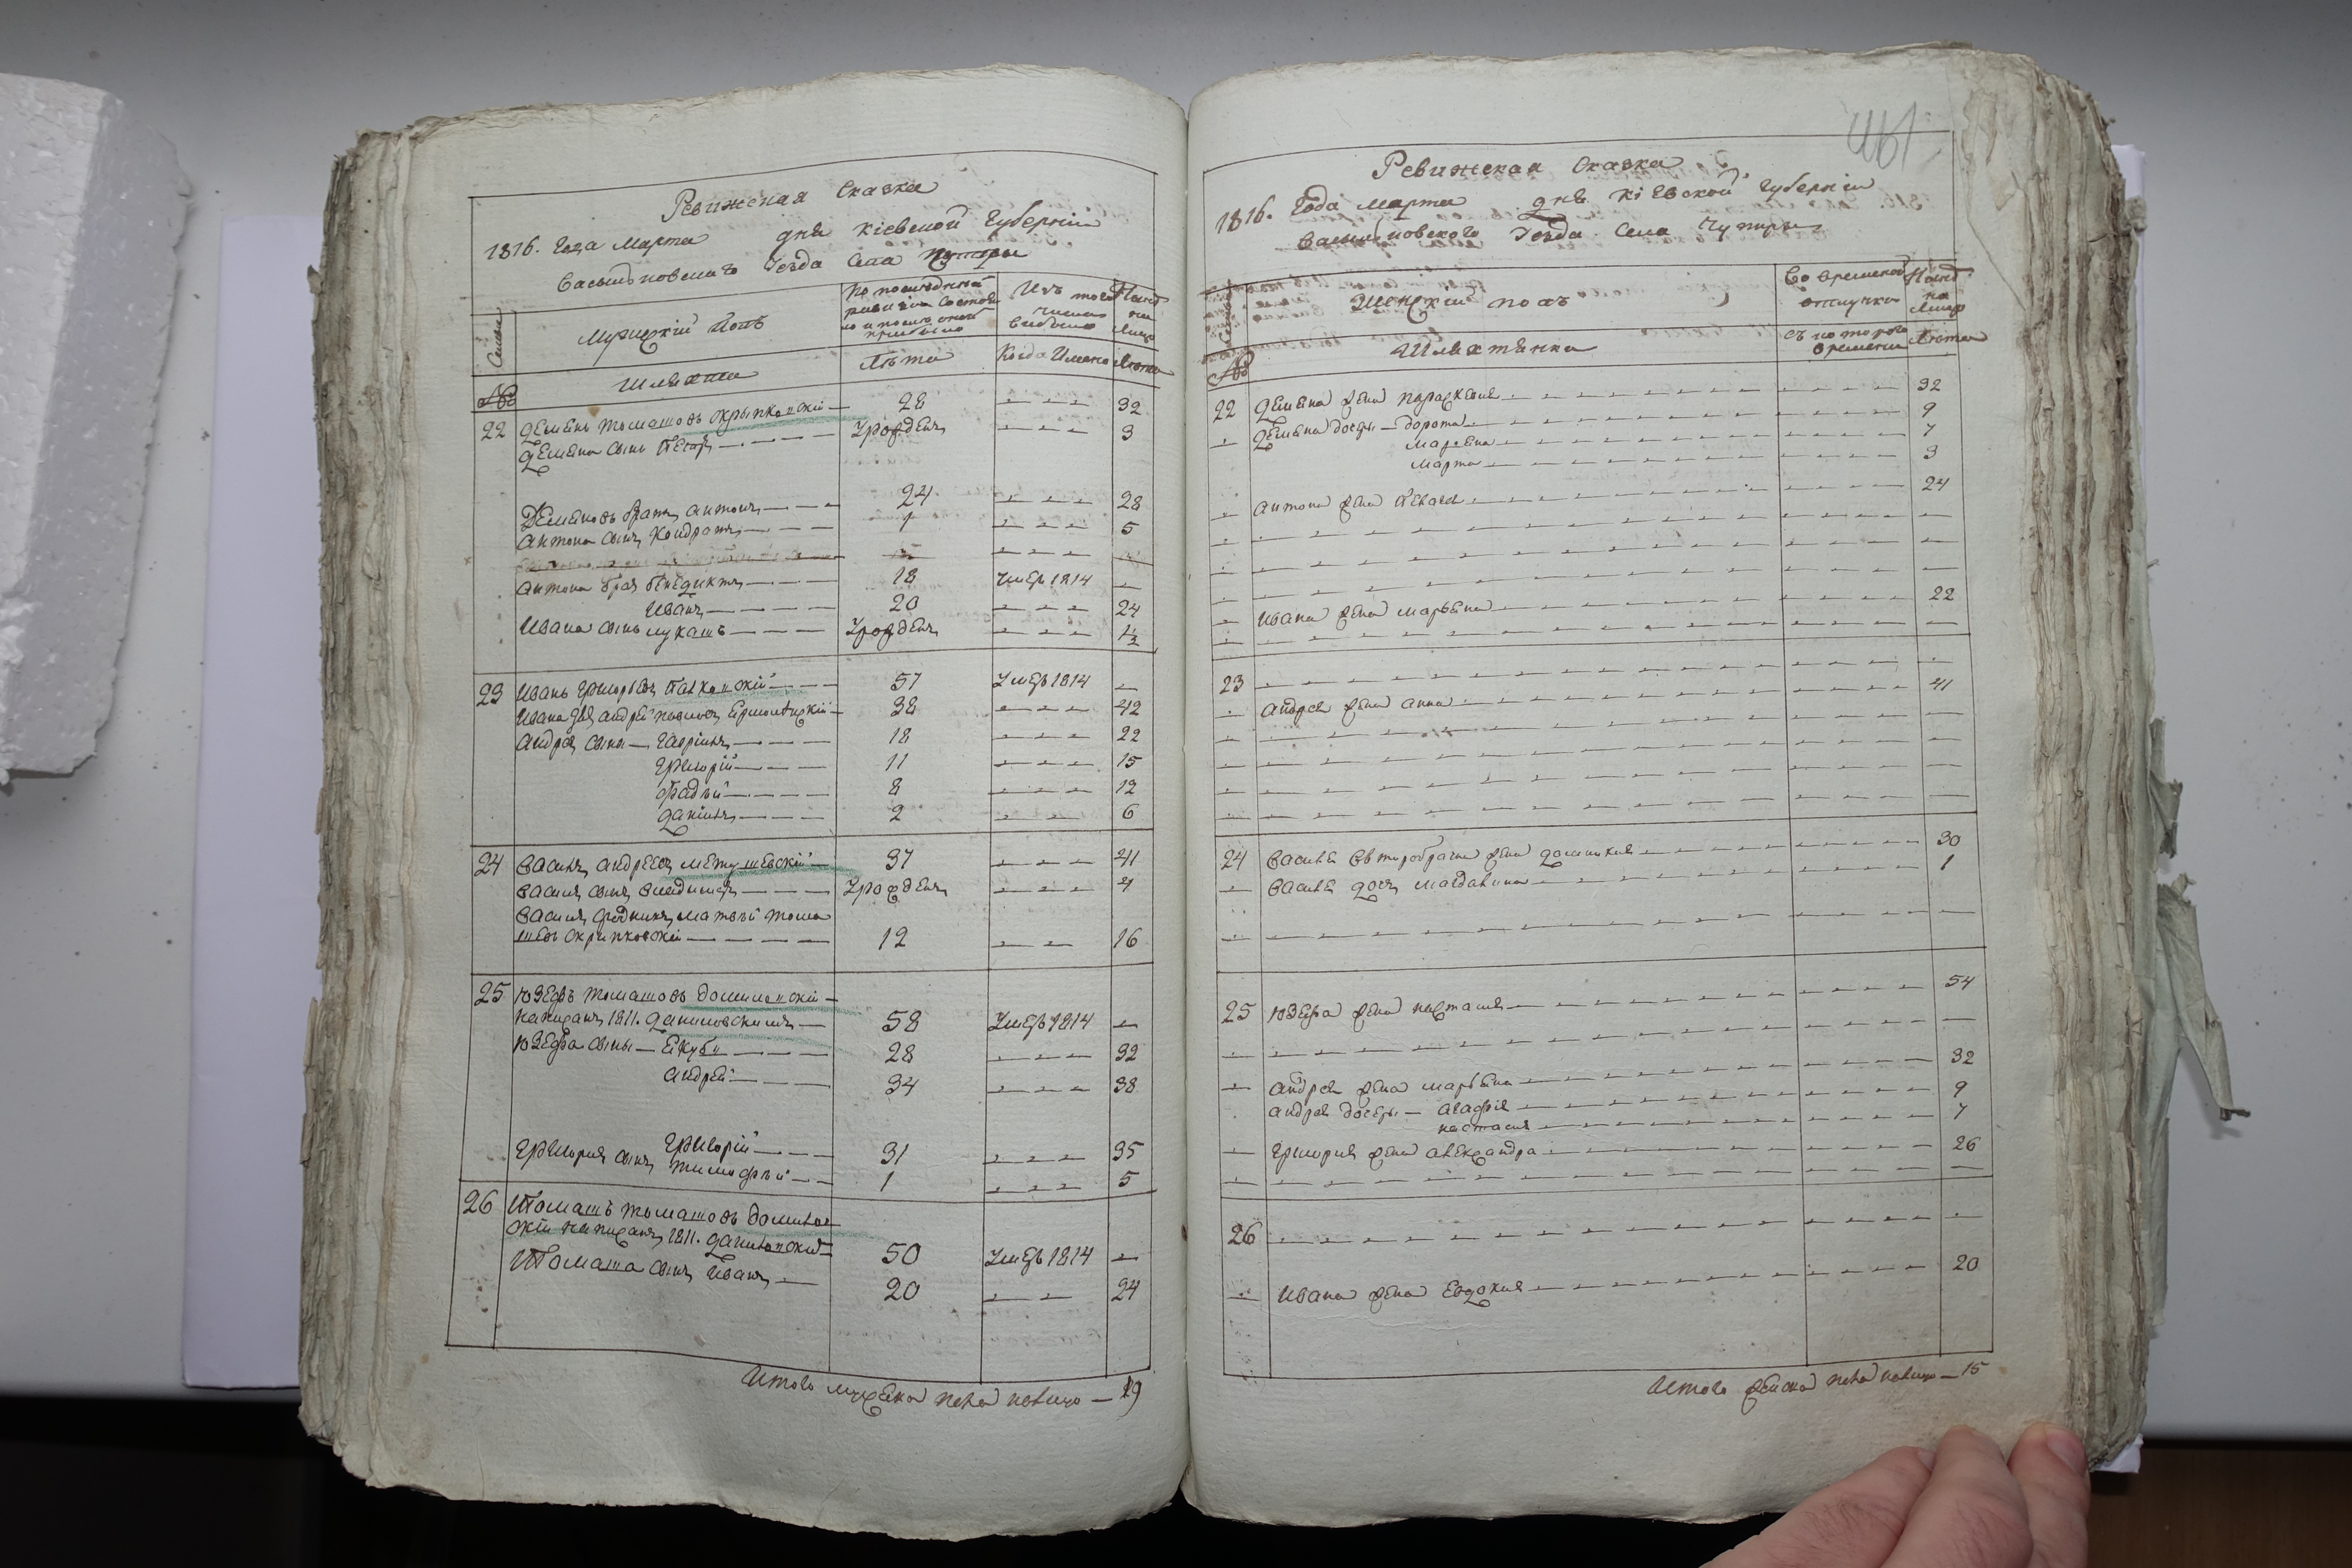 Ревижская Сказка
1816. Года Марта дня Кіевской Губерніи
Васильковскаго Уезда Села Чупыры
Семьи
Мужескій Полъ
По последней ревизіи состояло и после оной прибыло
Изъ того числа выбыло
Нынѣ на лицо
№
Шляхта
Лѣта
Когда Именно
Лѣта
22 Демьянъ Томашовъ Скрыпковскій — 28 — — — 32
Демьяна сынъ Петръ — Урожденъ — — — 3
Демьяновъ братъ Антонъ — 24 — — — 28
Антона сынъ Кондратъ — 1 — — — 5
Антона братъ Бенедиктъ — 18 Умеръ 1814 —
Иванъ — 20 — — — 24
Ивана сынъ Лукашъ — Урожденъ — — — ½
23 Иванъ Григорьевъ — 57 Умеръ 1814 —
Ивана Андрей — 38 — — — 42
Андрея сыны — Гаврiилъ — 18 — — — 22
Григорій — 11 — — — 15
Фадѣй — 8 — — — 12
Данiилъ — 2 — — — 6
24 Василь Андреевъ — 37 — — — 41
Василя сынъ Владимеръ — Урожденъ — — — 4
Василя Матвѣй Тома
шевъ Скрипковскій — 12 — — 16
25 Юзефъ Томашовъ Долиновскій —
написанъ 1811. Даниловскимъ — 58 Умеръ 1814 —
Юзефа сыны — Якубъ — 28 — — — 32
Андрей — 34 — — — 38
Григорій — 31 — — — 35
Григория сынъ Тимофѣй — 1 — — — 5
26 Томашъ Томашовъ Долинов
скій написанъ 1811. Даниловский — 50 Умеръ 1814 —
Томаша сынъ Иванъ — 20 — — 24
Итого мужеска пола налицо — 19
Ревижская Сказка
1816. Года Марта дня Кіевской Губерніи
Васильковского Уезда Села Чупыры
Женскій полъ
Во временной отлучке
Нынѣ на Лицо
№
Шляхтянки
Съ которого времени
Лѣта
22 Демьяна жена Параскевия — 32
Демьяна дочеры — Дорота — 9
Марьяна — 7
Марта — 3
Антона жена — 24
Ивана жена Марьяна — 22
23
Андрея жена Анна — 41
24 Василя второбрачна жена Доминикия — 30
Василя дочъ Магдалина — 1
25 Юзефа жена Настасия — 54
Андрея жена Марьяна — 32
Андрея дочеры — Агафiя — 9
Настасия — 7
Григория жена Александра — 26
26
Ивана жена Евдокия — 20
Итого женска пола налицо — 15